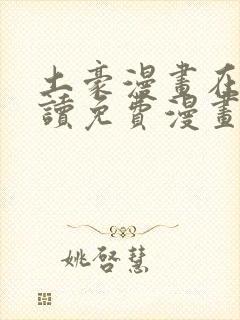 土豪漫畫在
讀免費漫畫
姚啓慧